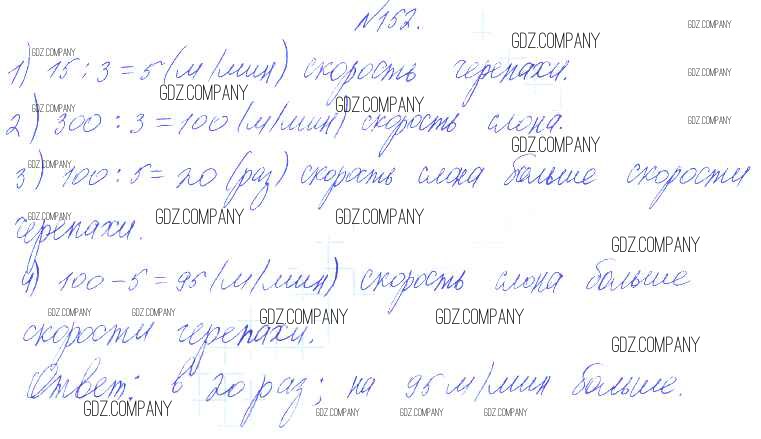 №152.
GDZ.COMPANY GDZ.COMPANY
GDZ.COMPANY
1) 15 : 3 = 5 (м/мин) скорость черепахи.
GDZ.COMPANY
GDZ.COMPANY GDZ.COMPANY
GDZ.COMPANY
2) 300 : 3 = 100 (м/мин) скорость слона.
GDZ.COMPANY
GDZ.COMPANY
GDZ.COMPANY
3) 100 : 5 = 20 (раз) скорость слона больше скорости
GDZ.COMPANY GDZ.COMPANY GDZ.COMPANY
черепахи.
GDZ.COMPANY
4) 100 – 5 = 95 (м/мин) скорость слона больше
GDZ.COMPANY GDZ.COMPANY GDZ.COMPANY GDZ.COMPANY
скорости черепахи.
GDZ.COMPANY
Ответ: в 20 раз; на 95 м/мин больше.
GDZ.COMPANY GDZ.COMPANY GDZ.COMPANY GDZ.COMPANY